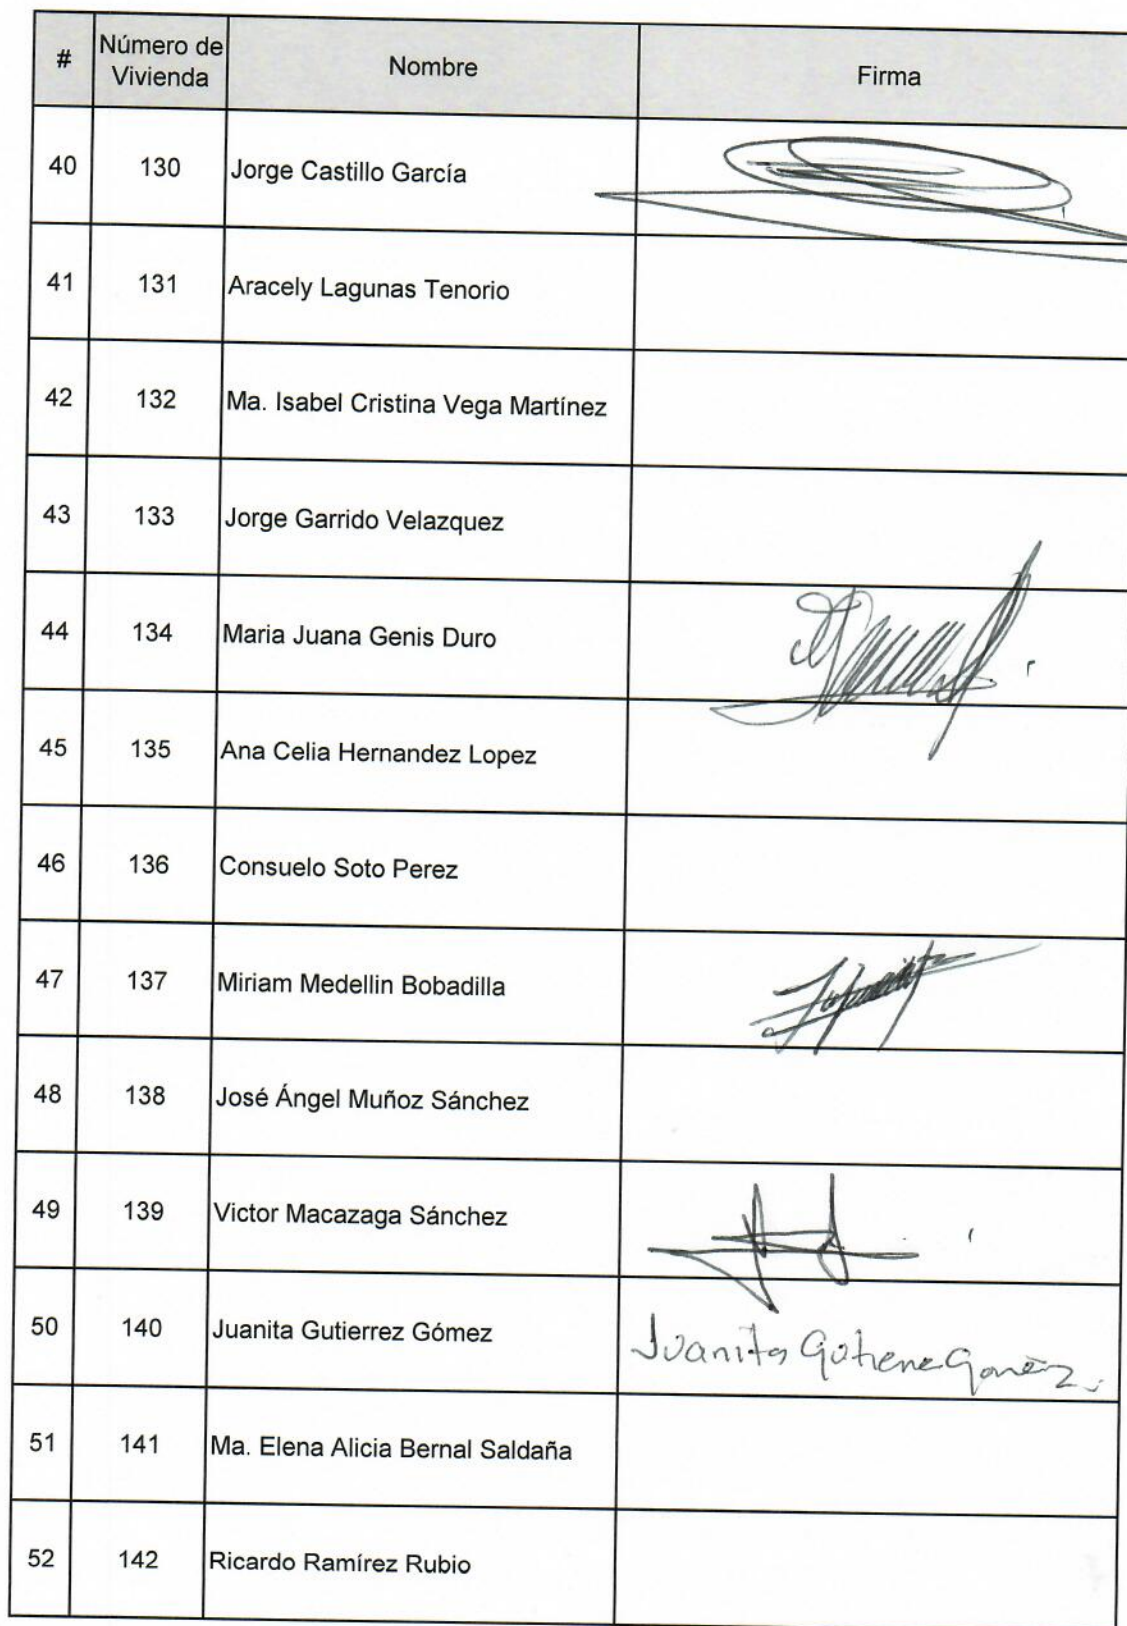 # Número de Vivienda Nombre Firma
40 130 Jorge Castillo García
41 131 Aracely Lagunas Tenorio
42 132 Ma. Isabel Cristina Vega Martínez
43 133 Jorge Garrido Velazquez
44 134 Maria Juana Genis Duro
45 135 Ana Celia Hernandez Lopez
46 136 Consuelo Soto Perez
47 137 Miriam Medellin Bobadilla
48 138 José Ángel Muñoz Sánchez
49 139 Victor Macazaga Sánchez
50 140 Juanita Gutierrez Gómez Juanita
51 141 Ma. Elena Alicia Bernal Saldaña
52 142 Ricardo Ramírez Rubio